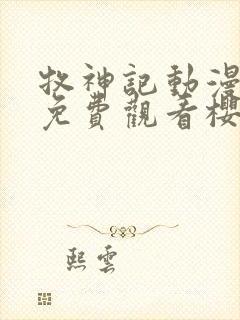 牧神記動漫
免費觀看櫻
熙雲